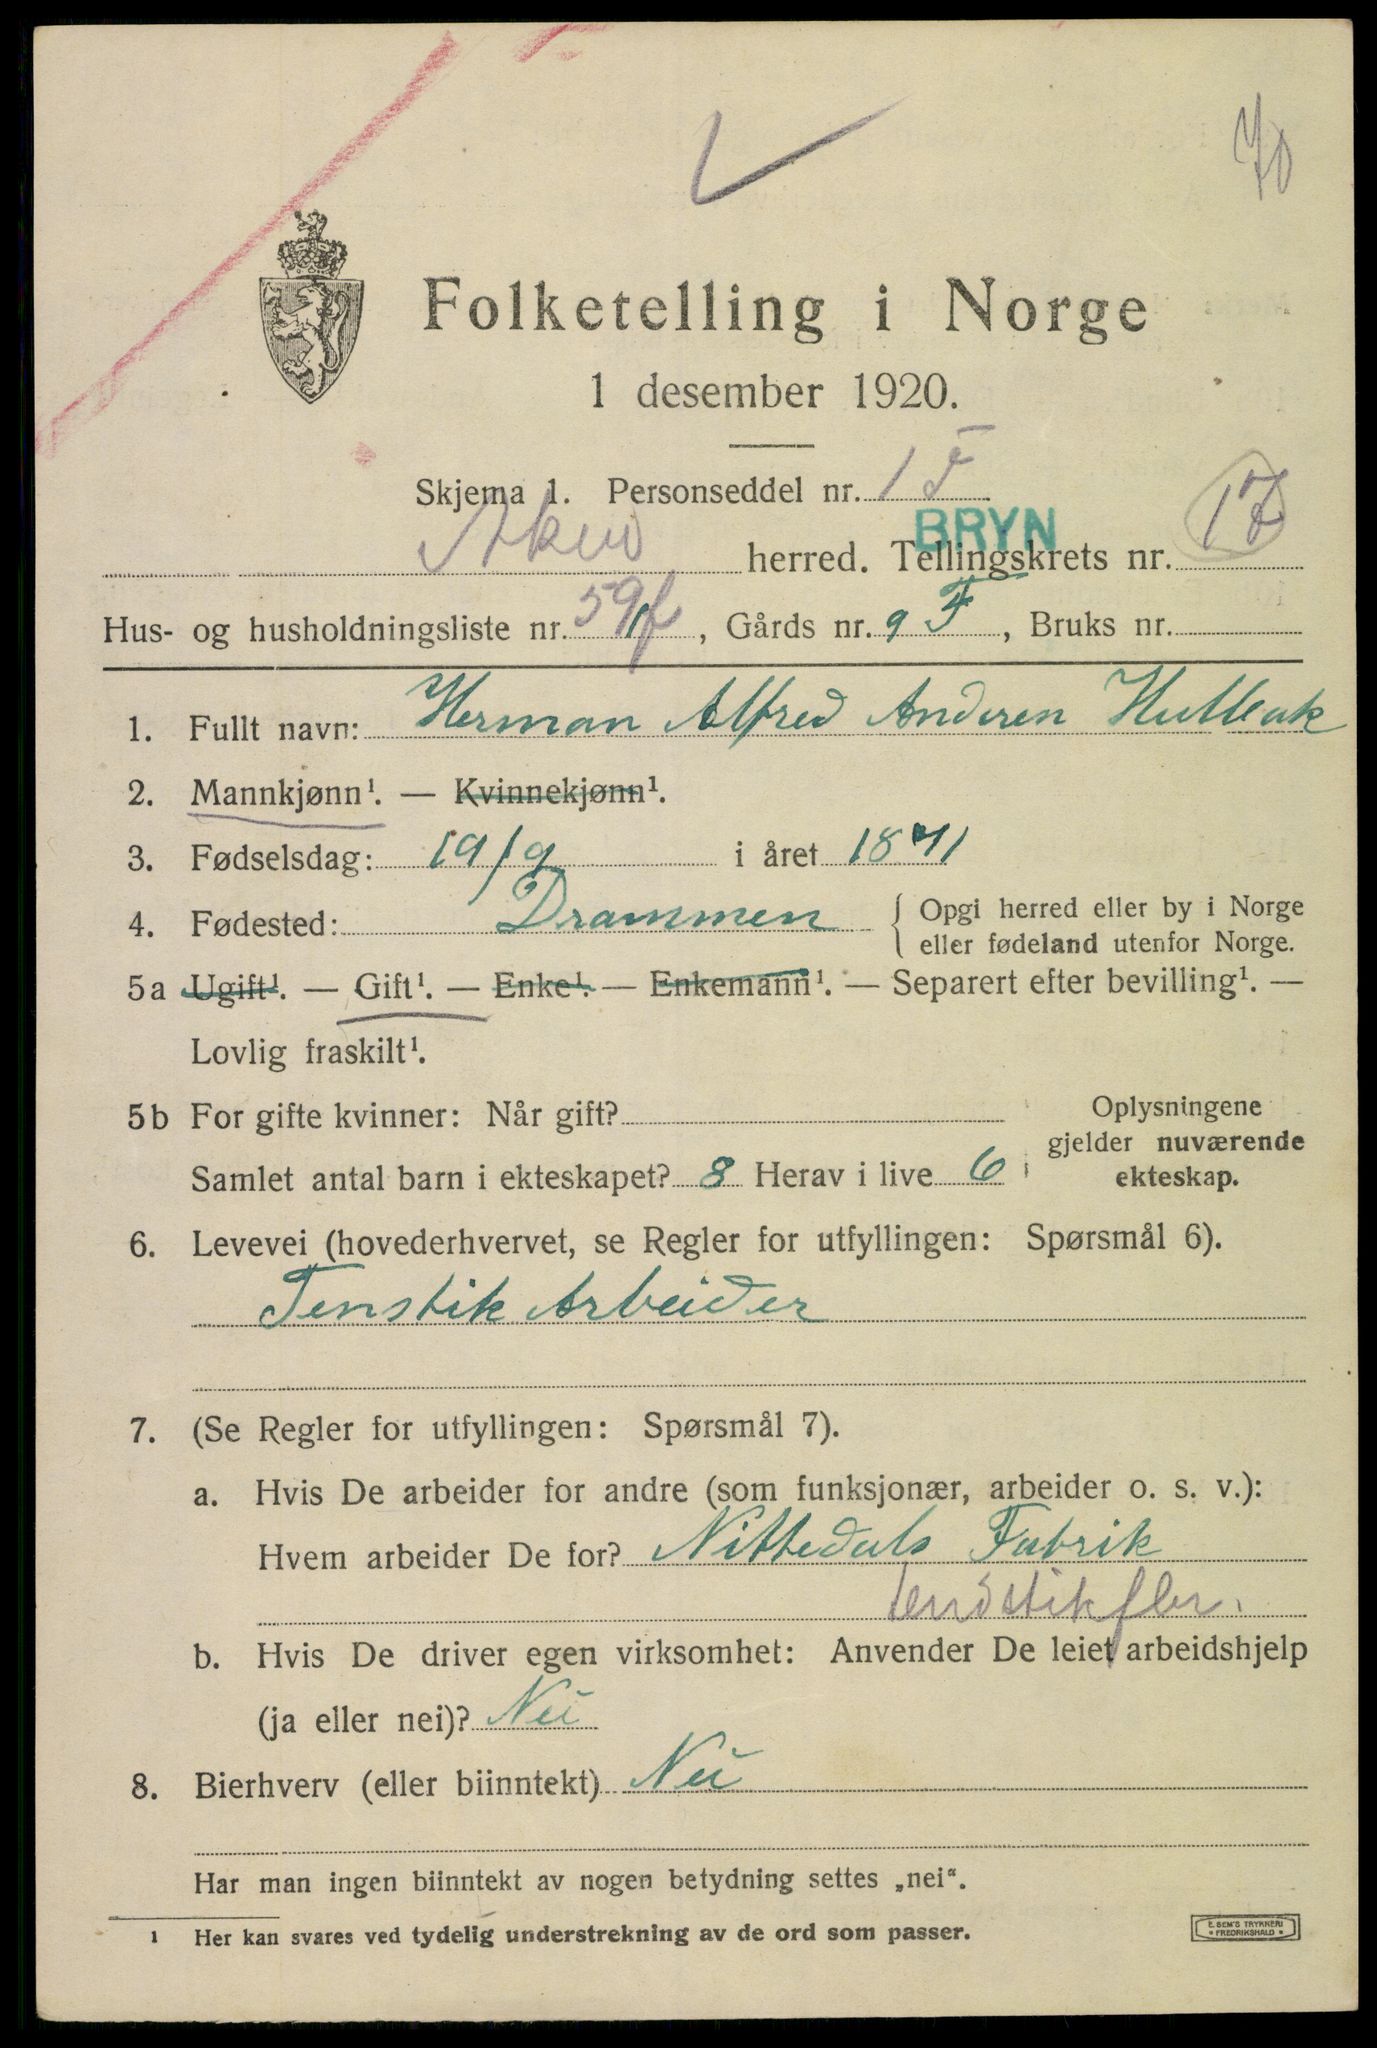 70
Folketelling i Norge
1 desember 1920.
Skjema 1. Personseddel nr. 1 F
Aker herred. Tellingskrets nr. 17
BRYN
Hus- og husholdningsliste nr. 59f, Gårds nr. 9 F, Bruks nr.
1. Fullt navn: Herman Alfred Andersen
2. Mannkjønn¹. — Kvinnekjønn¹.
3. Fødselsdag: 19/9 i året 1871
4. Fødested: Drammen { Opgi herred eller by i Norge
eller fødeland utenfor Norge.
5a Ugift¹. — Gift¹. — Enke¹. — Enkemann¹. — Separert efter bevilling¹. —
Lovlig fraskilt¹.
5b For gifte kvinner: Når gift?
Samlet antal barn i ekteskapet? 8 Herav i live 6
Oplysningene
gjelder nuværende
ekteskap.
6. Levevei (hovederhvervet, se Regler for utfyllingen: Spørsmål 6).
Tenstik Arbeider
7. (Se Regler for utfyllingen: Spørsmål 7).
a. Hvis De arbeider for andre (som funksjonær, arbeider o. s. v.):
Hvem arbeider De for? Nittedals Fabrik
tendstikfbr.
b. Hvis De driver egen virksomhet: Anvender De leiet arbeidshjelp
(ja eller nei)? Nei
8. Bierhverv (eller biinntekt) Nei
Har man ingen biinntekt av nogen betydning settes „nei“.
¹ Her kan svares ved tydelig understrekning av de ord som passer.
E. SEM'S TRYKKERI
* FREDRIKSHALD *